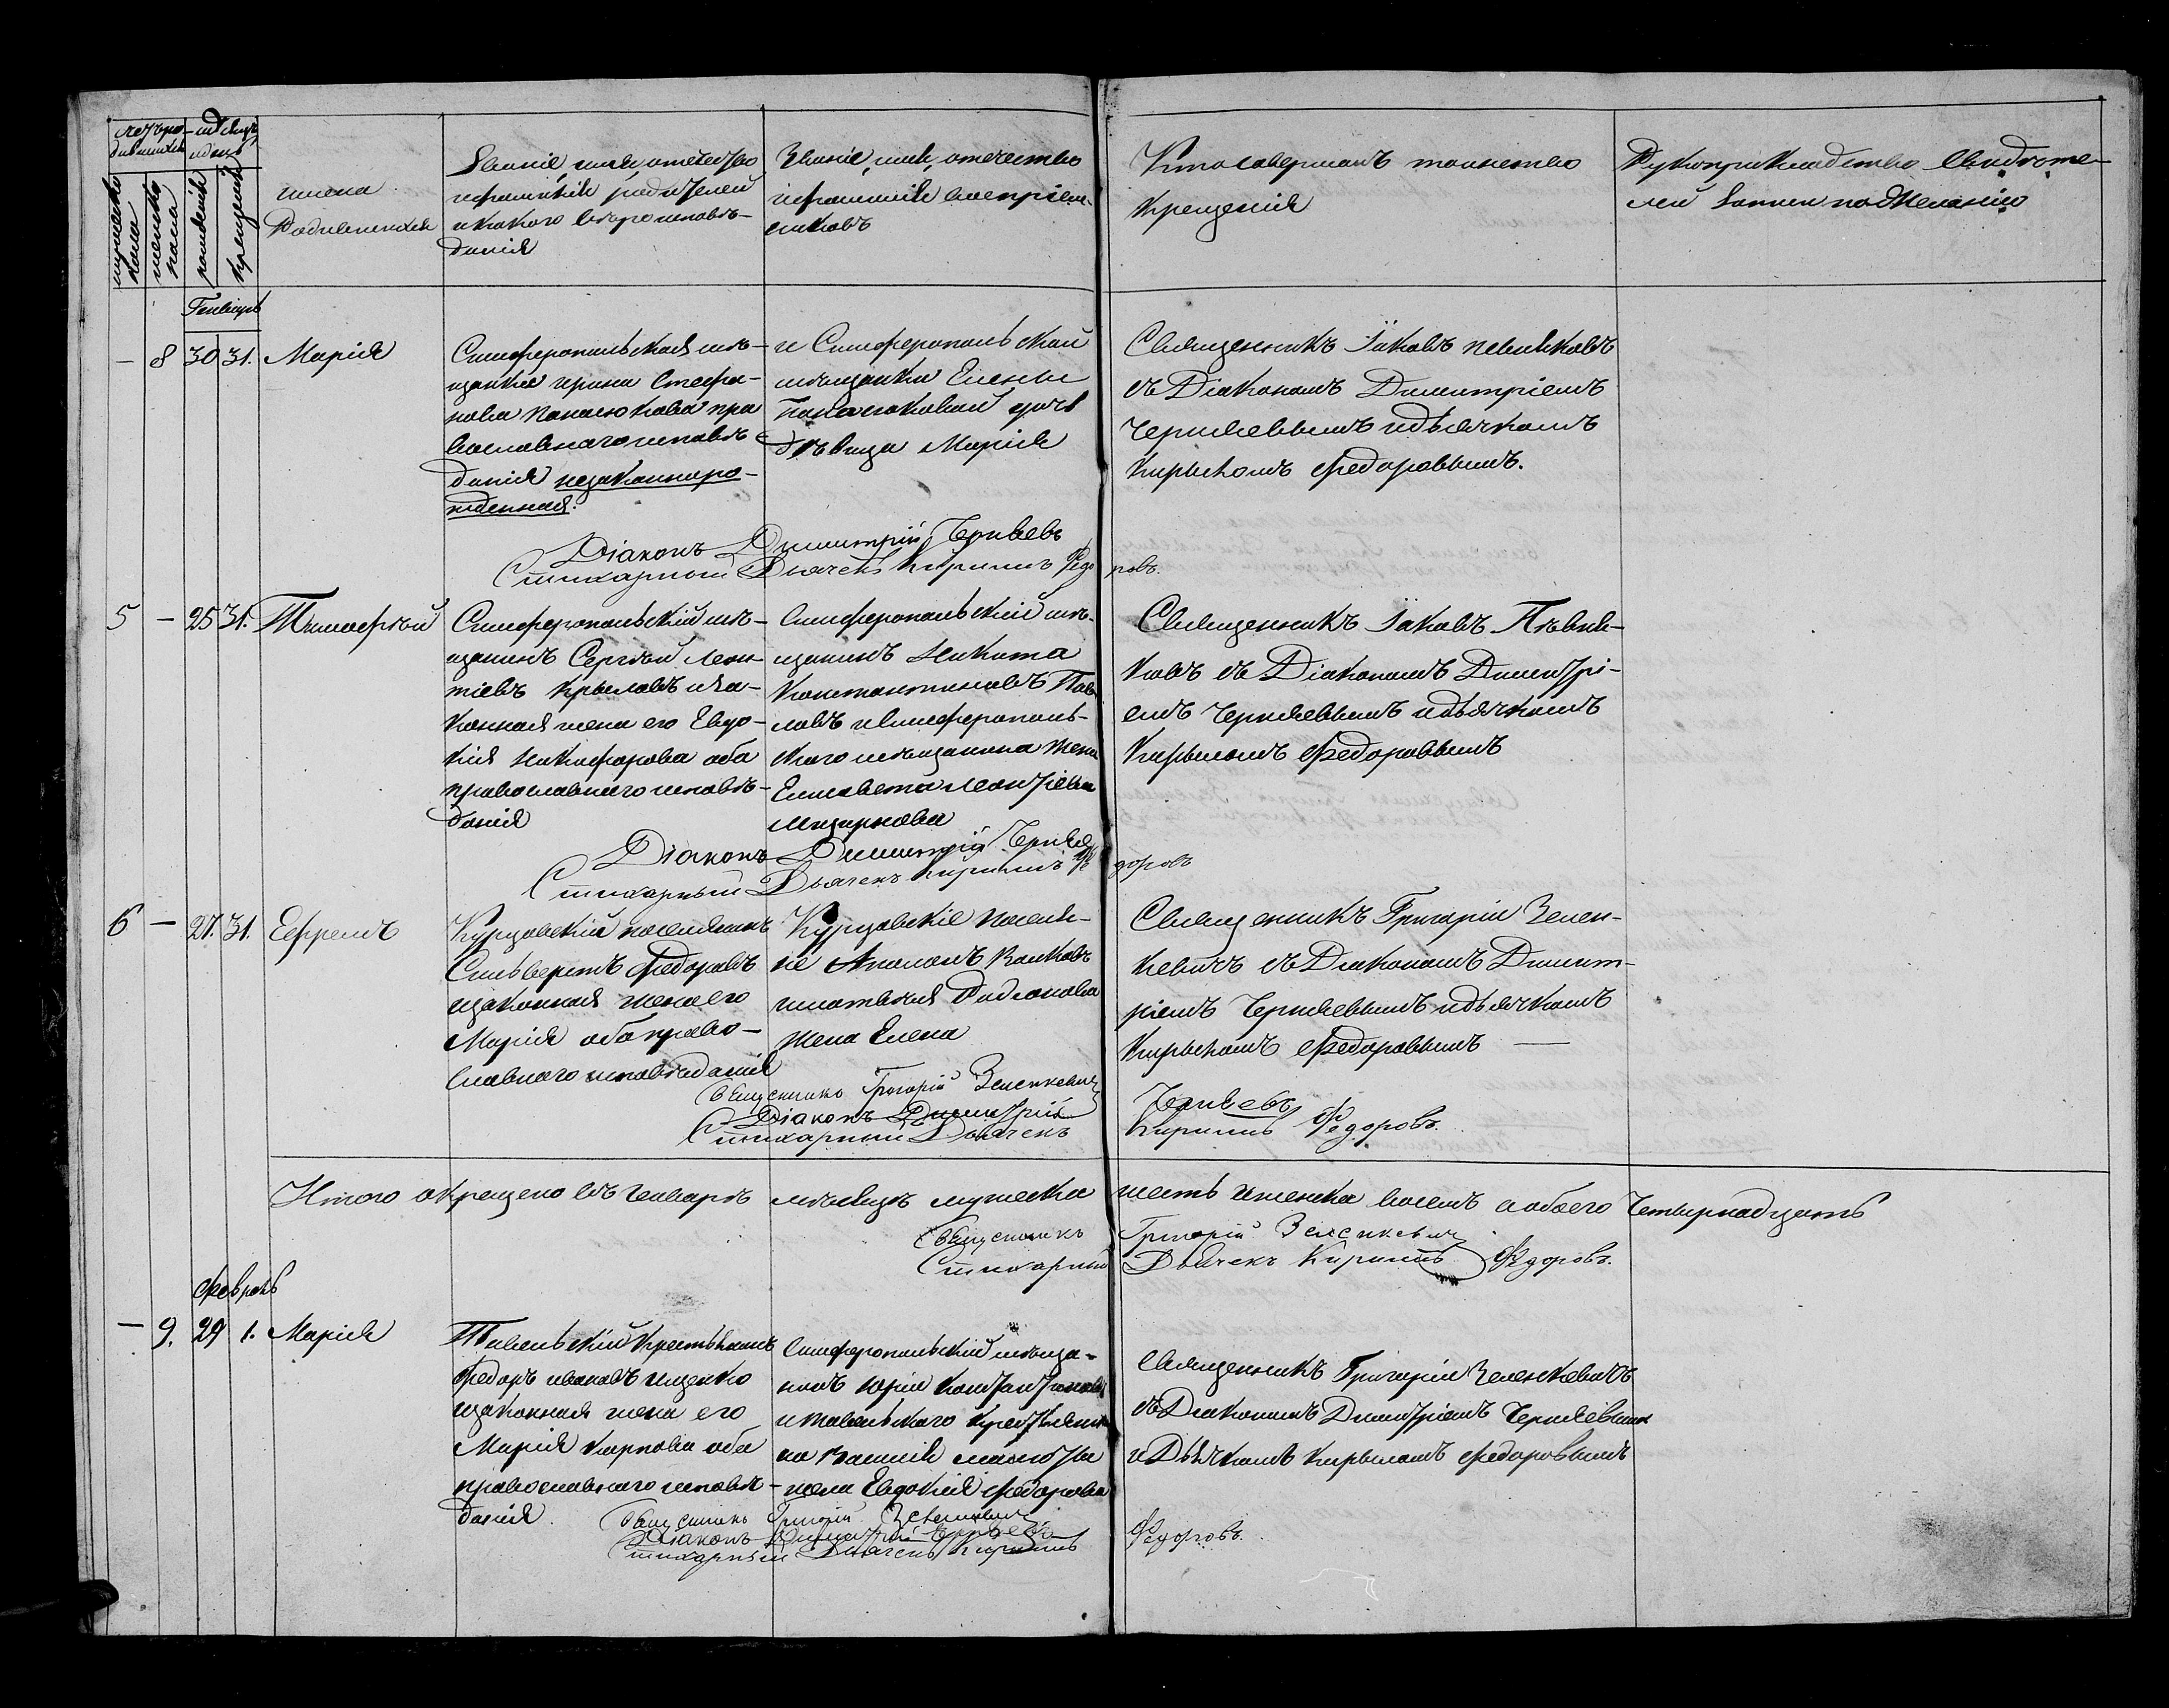 счетъ ро-
дившихся
мѣсяцъ
и день
мужеска
пола
женска
пола
рожденія
крещенія
имена
Родившихся
Званіе, имя, отечество
и фамилія родителей
и какого вѣроисповѣ-
данія
Званіе, имя, отечество
и фамилія воспріем-
никовъ
Кто совершалъ таинство
крещенія
Рукоприкладство свидѣте-
лей записи по желанію
Генварь
— 8 30 31. Марія
Симферопольская мѣ-
щанка Ирина Стефа-
нова Панасюкова пра
вославнаго исповѣ
данія незаконноро-
жденная.
и Симферопольской
мѣщанки Елены
Панасюковой дочь
дѣвица Марія
Священникъ Іаковъ Певняковъ
съ Діакономъ Димитріемъ
Черняевымъ и дьячкомъ
Кирыломъ Федоровымъ.
Діаконъ Димитрій Черняевъ
Стихарный Дьячекъ Кирилъ Федоровъ.
5 — 25 31. Тимофѣй
Симферопольскій мѣ-
щанинъ Сергѣй Леон-
тіевъ Крыловъ и за-
конная жена его Евдо-
кія Никифорова оба
православнаго исповѣ-
данія
Симферопольскій мѣ-
щанинъ Никита
Константиновъ Пав-
ловъ и Симферополь-
скаго мѣщанина жена
Елисавета Леонтіева
Священникъ Іаковъ Пѣвня-
ковъ съ Діакономъ Димитрі-
емъ Черняевымъ и дьячкомъ
Кирыломъ Федоровымъ
Діаконъ Димитрій Черняе
Стихарный Дьячекъ Кирилъ Федоровъ
6 — 27. 31. Ефремъ
Курцовскій поселянинъ
Сильверстъ Федоровъ
и законная жена его
Марія оба право-
славнаго исповѣданія
Курцовскіе поселя-
не Волковъ
Родіонова
жена Елена
Священникъ Григорій Зелен-
кевичъ съ Діакономъ Димит-
ріемъ Черняевымъ и дьячкомъ
Кирыломъ Федоровымъ —
Священникъ Григорій Зеленкевичъ
Діаконъ Димитрій Черняевъ
Стихарный Дьячекъ Кирилъ Федоровъ.
Итого окрещено въ Генварѣ мѣсяцѣ мужеска шесть и женска восемь а обоего четырнадцать
Священникъ Григорій Зеленкевичъ
Стихарный Дьячекъ Кирилъ Федоровъ.
Февраль
— 9. 29 1. Марія
Тавельскій крестьянинъ
Федоръ Ивановъ Ищенко
и законная жена его
Марія Карпова оба
православнаго исповѣ-
данія.
Симферопольскій мѣща-
нинъ Юрій Константиновъ
и тавельскаго крестьяни
на Василія
жена Евдокія Федорова
Священникъ Григорій Зеленкевичъ
съ Діакономъ Димитріемъ Черняевымъ
и Дьячкомъ Кирыломъ Федоровымъ
Священникъ Григорій Зеленкевичъ
Діаконъ Димитрій Черняевъ
Стихарный Дьячекъ Кирилъ Федоровъ.